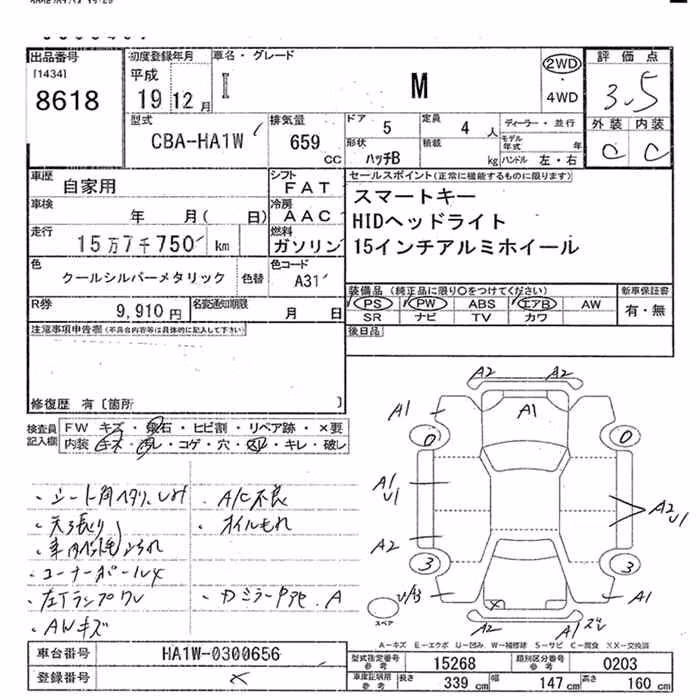 出品番号
[1434]
8618
初度登録年月
平成
19 12 月
車名・グレード
I M
2WD
4WD
評価点
3.5
外装 内装
C C
型式
CBA-HA1W
排気量
659
CC
ドア 5
定員 4 人
形状 ハッチB
積載 kg
ディーラー・並行
モデル年式 年
ハンドル 左・右
車歴
自家用
シフト
FAT
車検
年 月( 日)
冷房
AAC
走行
15万7千750 km
燃料
ガソリン
セールスポイント(正常に機能するものに限ります)
スマートキー
HIDヘッドライト
15インチアルミホイール
色
クールシルバーメタリック
色替
色コード
A31
R券
9,910円
名変通知期限
月 日
装備品 (純正品に限り○をつけてください)
PS PW ABS エアB AW
SR ナビ TV カワ
新車保証書
有・無
後日品
注意事項申告欄(不具合内容等は具体的に記入して下さい)
修復歴 有〔箇所 〕
検査員記入欄
FW キズ・飛石・ヒビ割・リペア跡・×要
内装 キズ・汚レ・コゲ・穴・スレ・キレ・破し
・A/C不良
・オイルもれ
・コーナーポール×
・AWキズ
A2 A2
A1 A1
0 0
A1
U1
A2
U1
A2
3 3
A1
×
A2 A1
スペア
A-キズ E-エクボ U-凹み W-補修跡 S-サビ C-腐食 X×-交換済
車台番号
HA1W-0300656
登録番号
×
型式指定番号
参考
15268
類別区分番号
参考
0203
車庫証明用
参考
長さ 339 cm
幅 147 cm
高さ 160 cm